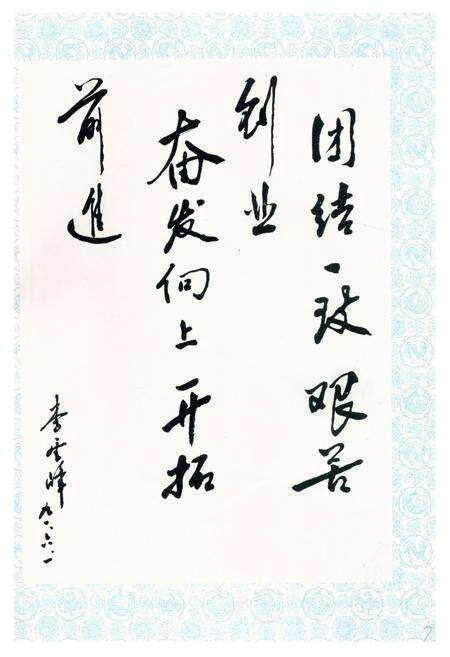 团结一致艰苦
创业
奋发向上开拓
前進
李雲峰
九八.六.一